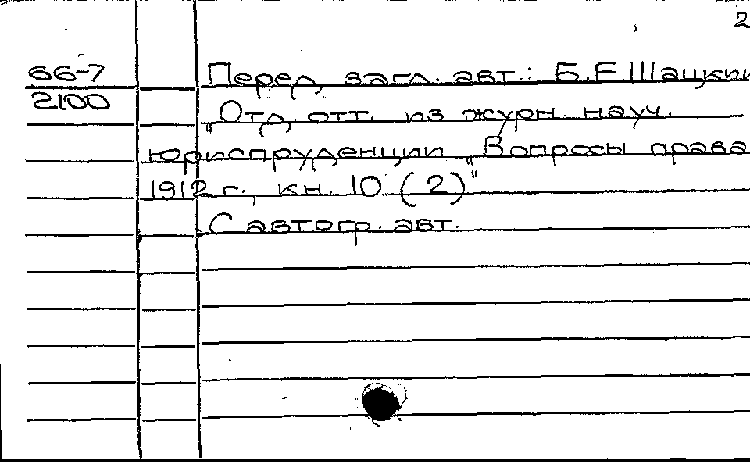 2
66-7
2100
Перед загл. авт.: Б.Е Шацкий
"Отд. отт. из журн. науч.
юриспруденции "Вопросы права
1912 г., кн. 10 (2)"
С автогр. авт.